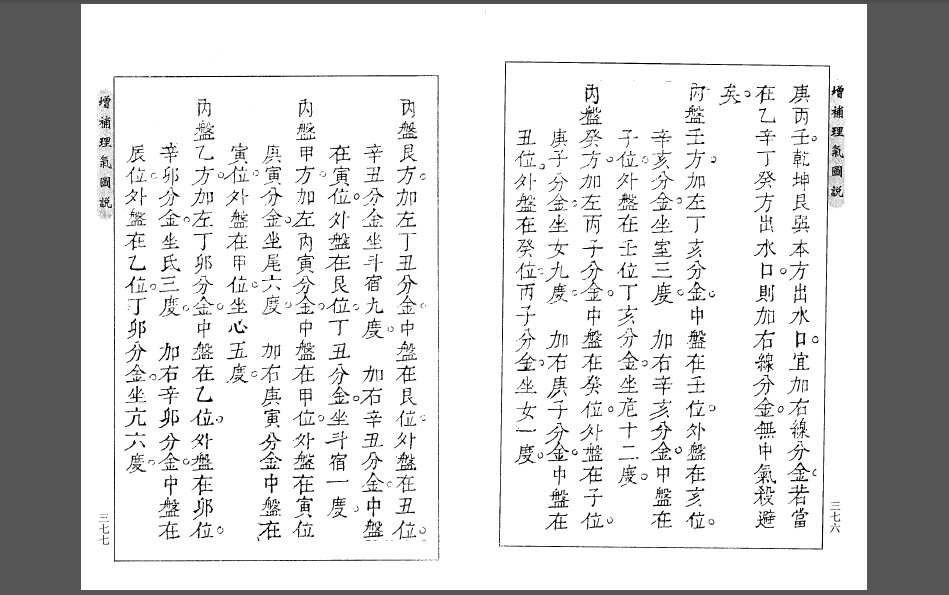 增補理氣圖說
三七六
庚丙壬。乾坤艮巽本方出水口。宜加右線分金。若當
在乙辛丁癸方出水口。則加右線分金。無中氣殺避
矣。
內盤壬方。加左丁亥分金。中盤在壬位。外盤在亥位。
辛亥分金。坐室三度。 加右辛亥分金。中盤在
子位。外盤在壬位。丁亥分金。坐危十二度。
內盤癸方。加左丙子分金。中盤在癸位。外盤在子位。
庚子分金。坐女九度。 加右庚子分金。中盤在
丑位。外盤在癸位。丙子分金。坐女一度。
內盤艮方。加左丁丑分金。中盤在艮位。外盤在丑位。
辛丑分金。坐斗宿九度。 加右辛丑分金。中盤
在寅位。外盤在艮位。丁丑分金。坐斗宿一度。
內盤甲方。加左丙寅分金。中盤在甲位。外盤在寅位
庚寅分金。坐尾六度。 加右庚寅分金中盤在
寅位。外盤在甲位。坐心五度。
內盤乙方。加左丁卯分金。中盤在乙位。外盤在卯位。
辛卯分金。坐氐三度。 加右辛卯分金。中盤在
辰位。外盤在乙位。丁卯分金。坐亢六度。
增補理氣圖說
三七七